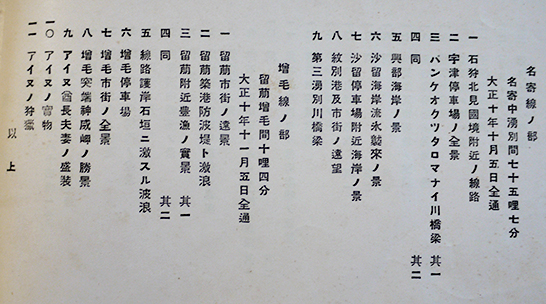 名寄線ノ部
名寄中湧別間七十五哩七分
大正十年十月五日全通
一 石狩北見國境附近ノ線路
二 宇津停車場ノ全景
三 パンケオクツタロマナイ川橋梁 其一
四 同 其二
五 興部海岸ノ景
六 沙留海岸流氷襲來ノ景
七 沙留停車場附近海岸ノ景
八 紋別港及市街ノ遠望
九 第三湧別川橋梁
增毛線ノ部
留萠增毛間十哩四分
大正十年十一月五日全通
一 留萠市街ノ遠景
二 留萠築港防波堤ト激浪
三 留萠附近豊漁ノ實景 其一
四 同 其二
五 線路護岸石垣ニ激スル波浪
六 增毛停車場
七 增毛市街ノ全景
八 增毛突端神威岬ノ勝景
九 アイヌ酋長夫妻ノ盛装
一〇 アイヌノ寶物
一一 アイヌノ狩獵
以上